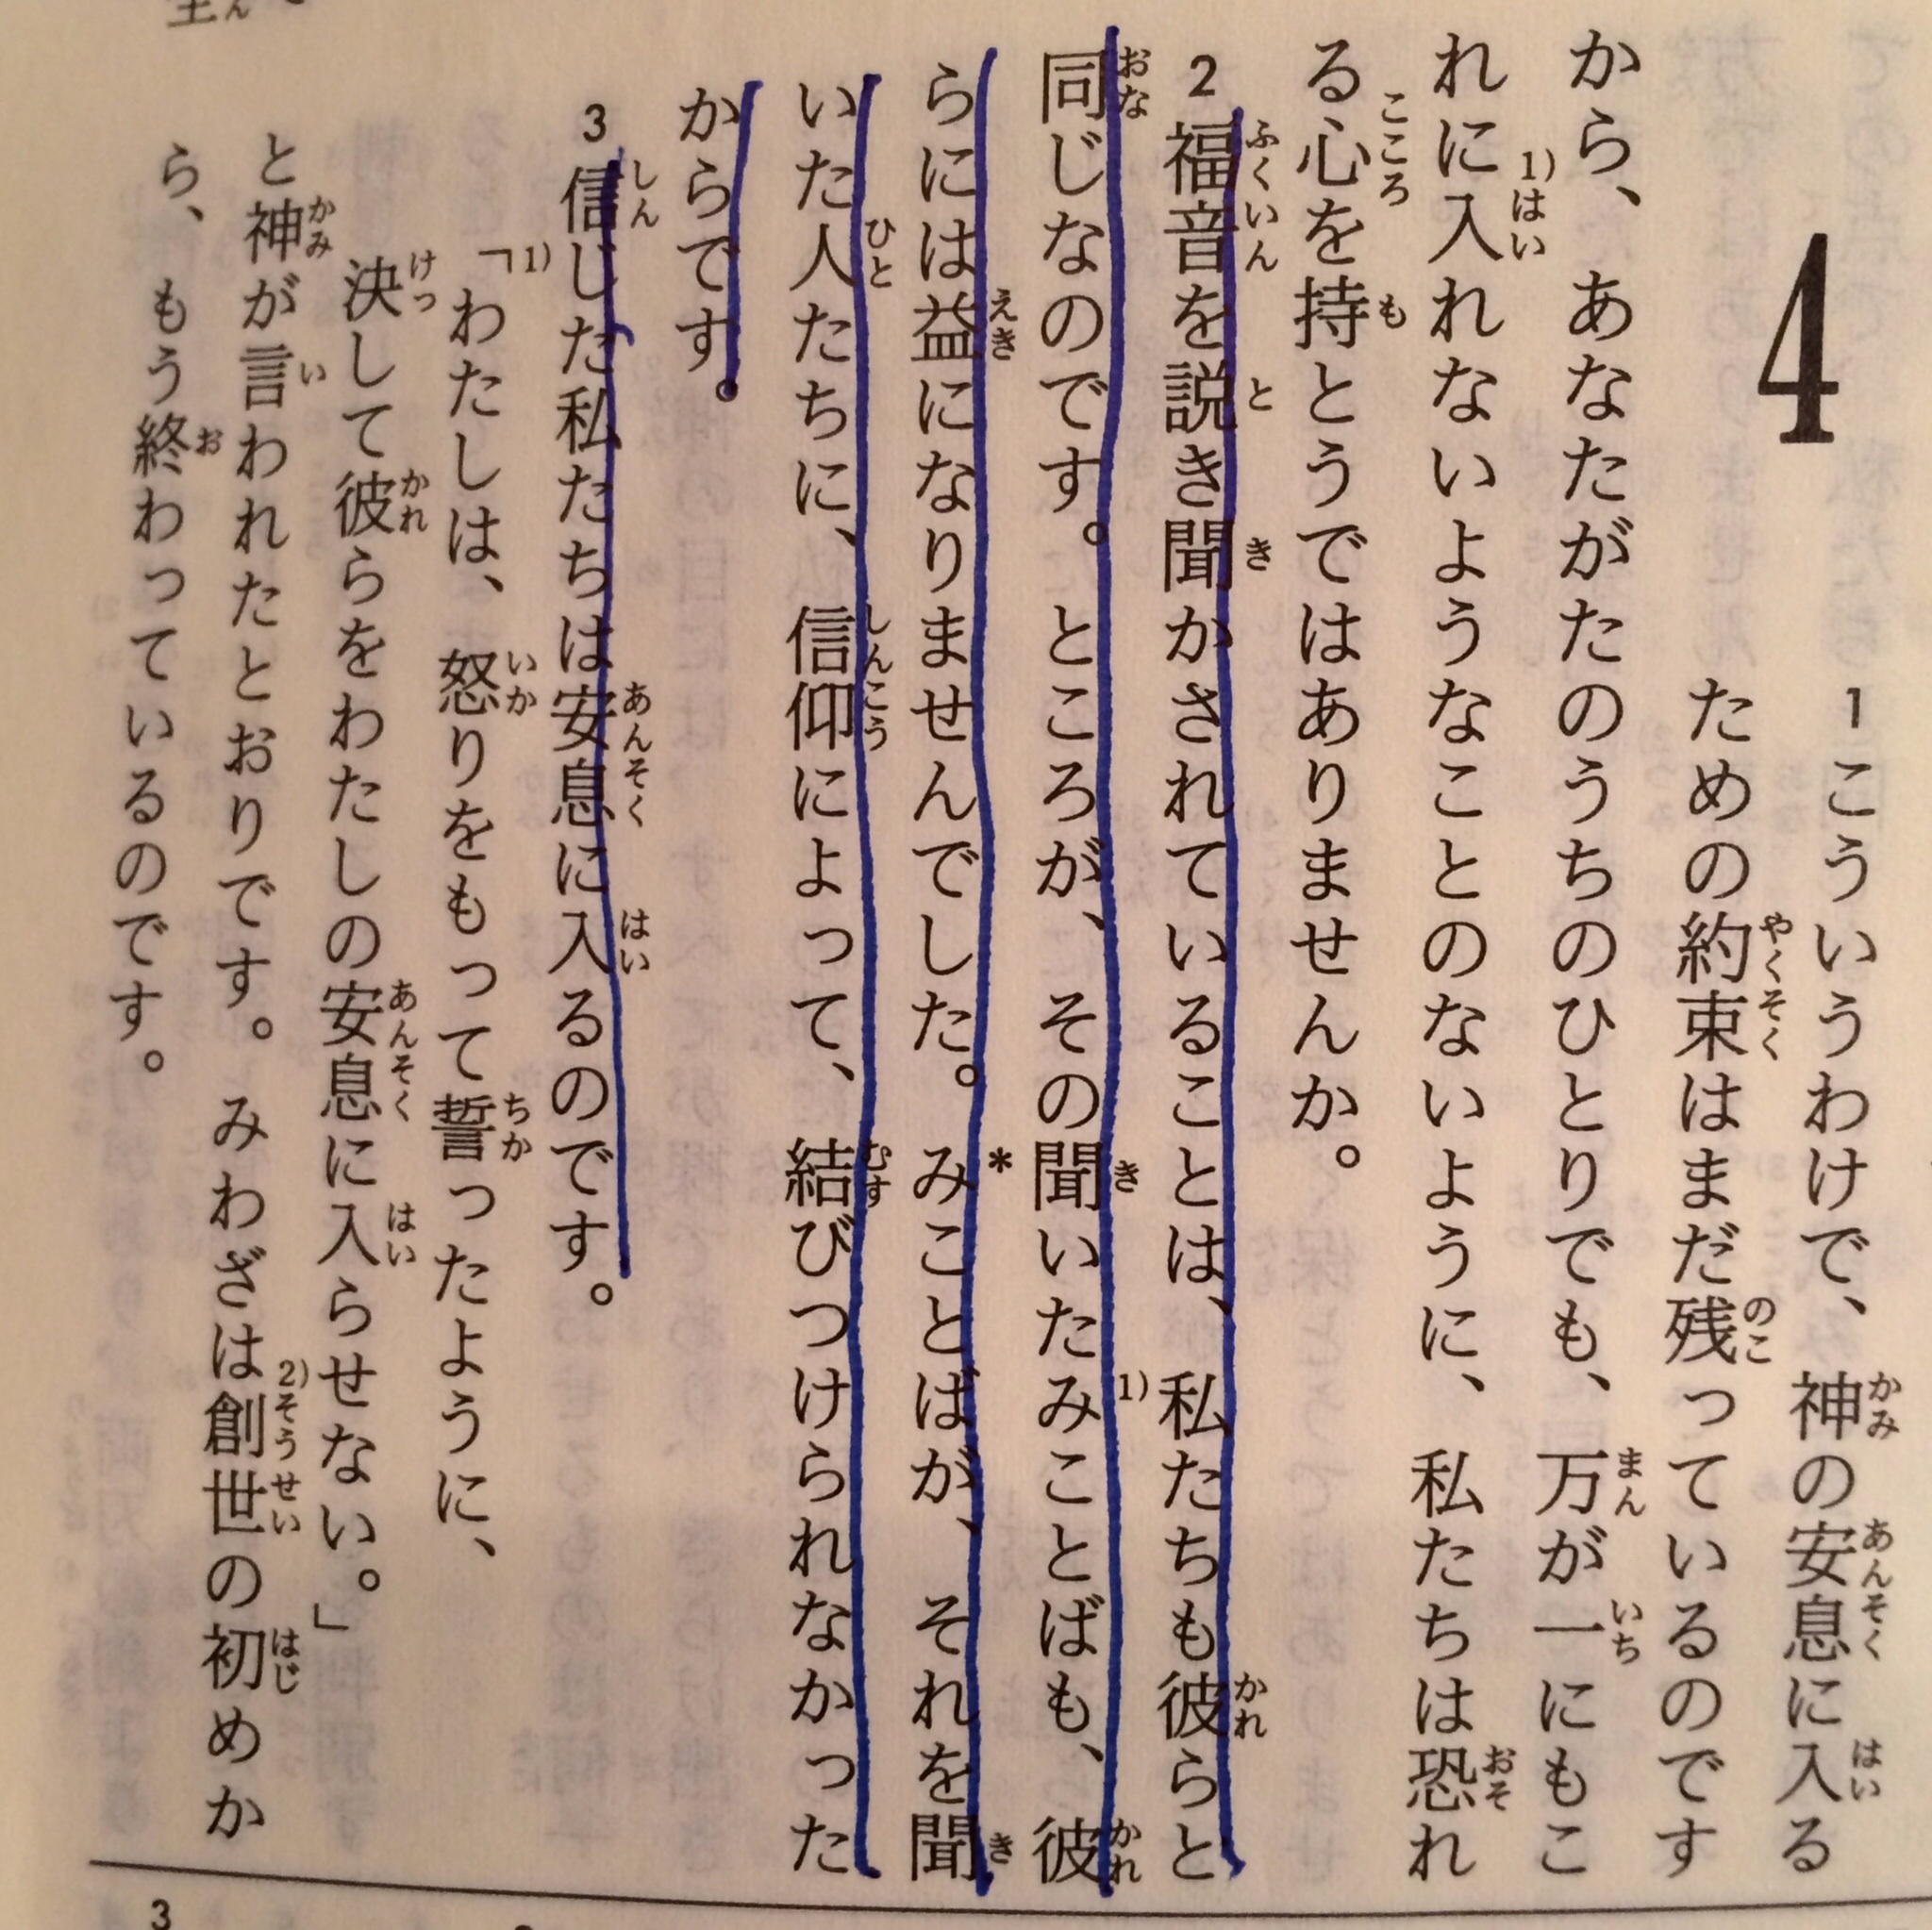 4
1こういうわけで、神の安息に入る
ための約束はまだ残っているのです
から、あなたがたのうちのひとりでも、万が一にもこ
れに1)入れないようなことのないように、私たちは恐れ
る心を持とうではありませんか。
2福音を説き聞かされていることは、私たちも彼らと
同じなのです。ところが、その聞いた1)みことばも、彼
らには益になりませんでした。*みことばが、それを聞
いた人たちに、信仰によって、結びつけられなかった
からです。
3信じた私たちは安息に入るのです。
「1)わたしは、怒りをもって誓ったように、
決して彼らをわたしの安息に入らせない。」
と神が言われたとおりです。みわざは2)創世の初めか
ら、もう終わっているのです。
3